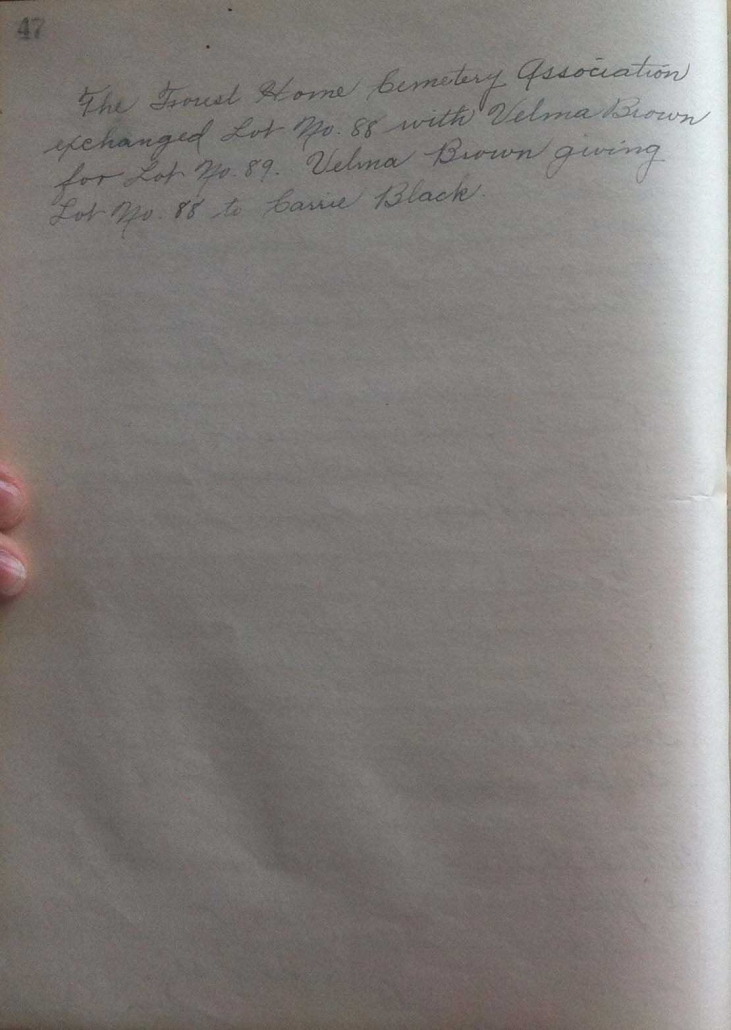 47
The Forest Home Cemetery Association
exchanged Lot No. 88 with Velma Brown
for Lot No. 89. Velma Brown giving
Lot No. 88 to Carrie Black.